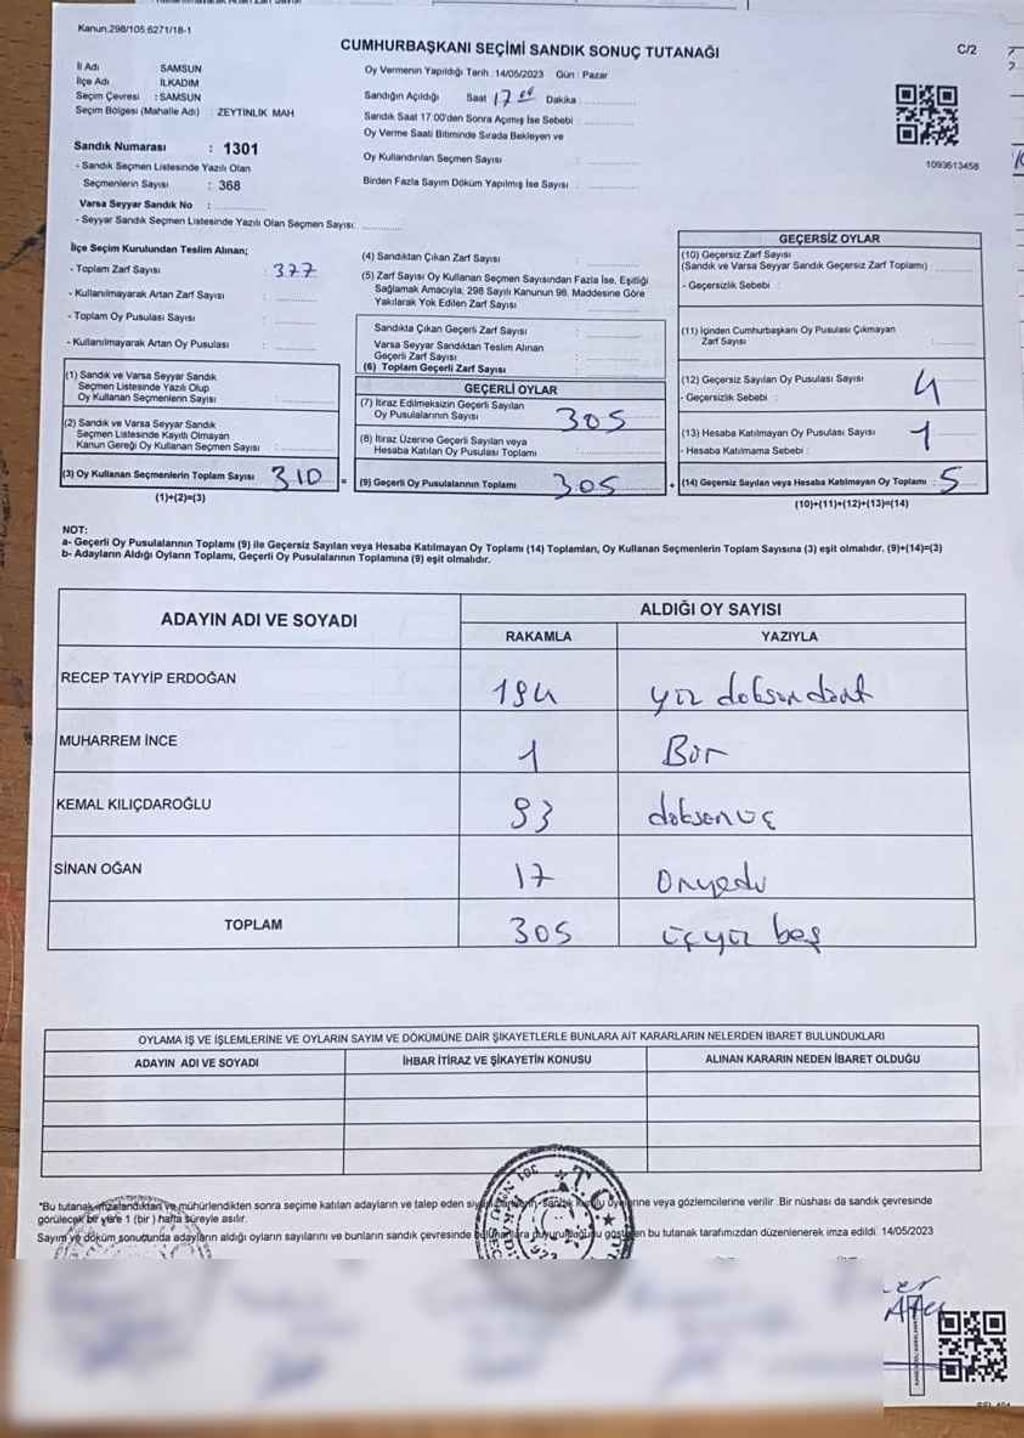 Kanun:298/105 6271/18-1
CUMHURBAŞKANI SEÇİMİ SANDIK SONUÇ TUTANAĞI
C/2
İl Adı SAMSUN
İlçe Adı İLKADIM
Seçim Çevresi : SAMSUN
Seçim Bölgesi (Mahalle Adı) : ZEYTİNLİK MAH
Sandık Numarası : 1301
- Sandık Seçmen Listesinde Yazılı Olan
Seçmenlerin Sayısı : 368
Varsa Seyyar Sandık No :
- Seyyar Sandık Seçmen Listesinde Yazılı Olan Seçmen Sayısı:
Oy Vermenin Yapıldığı Tarih : 14/05/2023 Gün : Pazar
Sandığın Açıldığı Saat 17 Dakika :
Sandık Saat 17:00'den Sonra Açımış İse Sebebi :
Oy Verme Saati Bitiminde Sırada Bekleyen ve
Oy Kullandırılan Seçmen Sayısı :
Birden Fazla Sayım Döküm Yapılmış İse Sayısı :
1093613458
İlçe Seçim Kurulundan Teslim Alınan;
- Toplam Zarf Sayısı : 377
- Kullanılmayarak Artan Zarf Sayısı :
- Toplam Oy Pusulası Sayısı :
- Kullanılmayarak Artan Oy Pusulası :
(1) Sandık ve Varsa Seyyar Sandık
Seçmen Listesinde Yazılı Olup
Oy Kullanan Seçmenlerin Sayısı :
(2) Sandık ve Varsa Seyyar Sandık
Seçmen Listesinde Kayıtlı Olmayan
Kanun Gereği Oy Kullanan Seçmen Sayısı :
(3) Oy Kullanan Seçmenlerin Toplam Sayısı 310 =
(1)+(2)=(3)
(4) Sandıktan Çıkan Zarf Sayısı :
(5) Zarf Sayısı Oy Kullanan Seçmen Sayısından Fazla İse, Eşitliği
Sağlamak Amacıyla, 298 Sayılı Kanunun 98. Maddesine Göre
Yakılarak Yok Edilen Zarf Sayısı :
Sandıkta Çıkan Geçerli Zarf Sayısı :
Varsa Seyyar Sandıktan Teslim Alınan
Geçerli Zarf Sayısı :
(6) Toplam Geçerli Zarf Sayısı :
GEÇERLİ OYLAR
(7) İtiraz Edilmeksizin Geçerli Sayılan
Oy Pusulalarının Sayısı : 305
(8) İtiraz Üzerine Geçerli Sayılan veya
Hesaba Katılan Oy Pusulası Toplamı :
(9) Geçerli Oy Pusulalarının Toplamı : 305 +
GEÇERSİZ OYLAR
(10) Geçersiz Zarf Sayısı
(Sandık ve Varsa Seyyar Sandık Geçersiz Zarf Toplamı) :
- Geçersizlik Sebebi :
(11) İçinden Cumhurbaşkanı Oy Pusulası Çıkmayan
Zarf Sayısı :
(12) Geçersiz Sayılan Oy Pusulası Sayısı 4
- Geçersizlik Sebebi :
(13) Hesaba Katılmayan Oy Pusulası Sayısı 1
- Hesaba Katılmama Sebebi :
(14) Geçersiz Sayılan veya Hesaba Katılmayan Oy Toplamı : 5
(10)+(11)+(12)+(13)=(14)
NOT:
a- Geçerli Oy Pusulalarının Toplamı (9) ile Geçersiz Sayılan veya Hesaba Katılmayan Oy Toplamı (14) Toplamları, Oy Kullanan Seçmenlerin Toplam Sayısına (3) eşit olmalıdır. (9)+(14)=(3)
b- Adayların Aldığı Oyların Toplamı, Geçerli Oy Pusulalarının Toplamına (9) eşit olmalıdır.
ADAYIN ADI VE SOYADI
ALDIĞI OY SAYISI
RAKAMLA YAZIYLA
RECEP TAYYİP ERDOĞAN 194 yüz doksan dört
MUHARREM İNCE 1 Bir
KEMAL KILIÇDAROĞLU 93 doksanüç
SİNAN OĞAN 17 Onyedi
TOPLAM 305 üçyüz beş
OYLAMA İŞ VE İŞLEMLERİNE VE OYLARIN SAYIM VE DÖKÜMÜNE DAİR ŞİKAYETLERLE BUNLARA AİT KARARLARIN NELERDEN İBARET BULUNDUKLARI
ADAYIN ADI VE SOYADI İHBAR İTİRAZ VE ŞİKAYETİN KONUSU ALINAN KARARIN NEDEN İBARET OLDUĞU
"Bu tutanak imzalandıktan ve mühürlendikten sonra seçime katılan adayların ve talep eden sandık kurulu üyelerine veya gözlemcilerine verilir. Bir nüshası da sandık çevresinde
görülecek bir yere 1 (bir) hafta süreyle asılır.
Sayım ve döküm sonucunda adayların aldığı oyların sayılarını ve bunların sandık çevresinde bu tutanak tarafımızdan düzenlenerek imza edildi. 14/05/2023